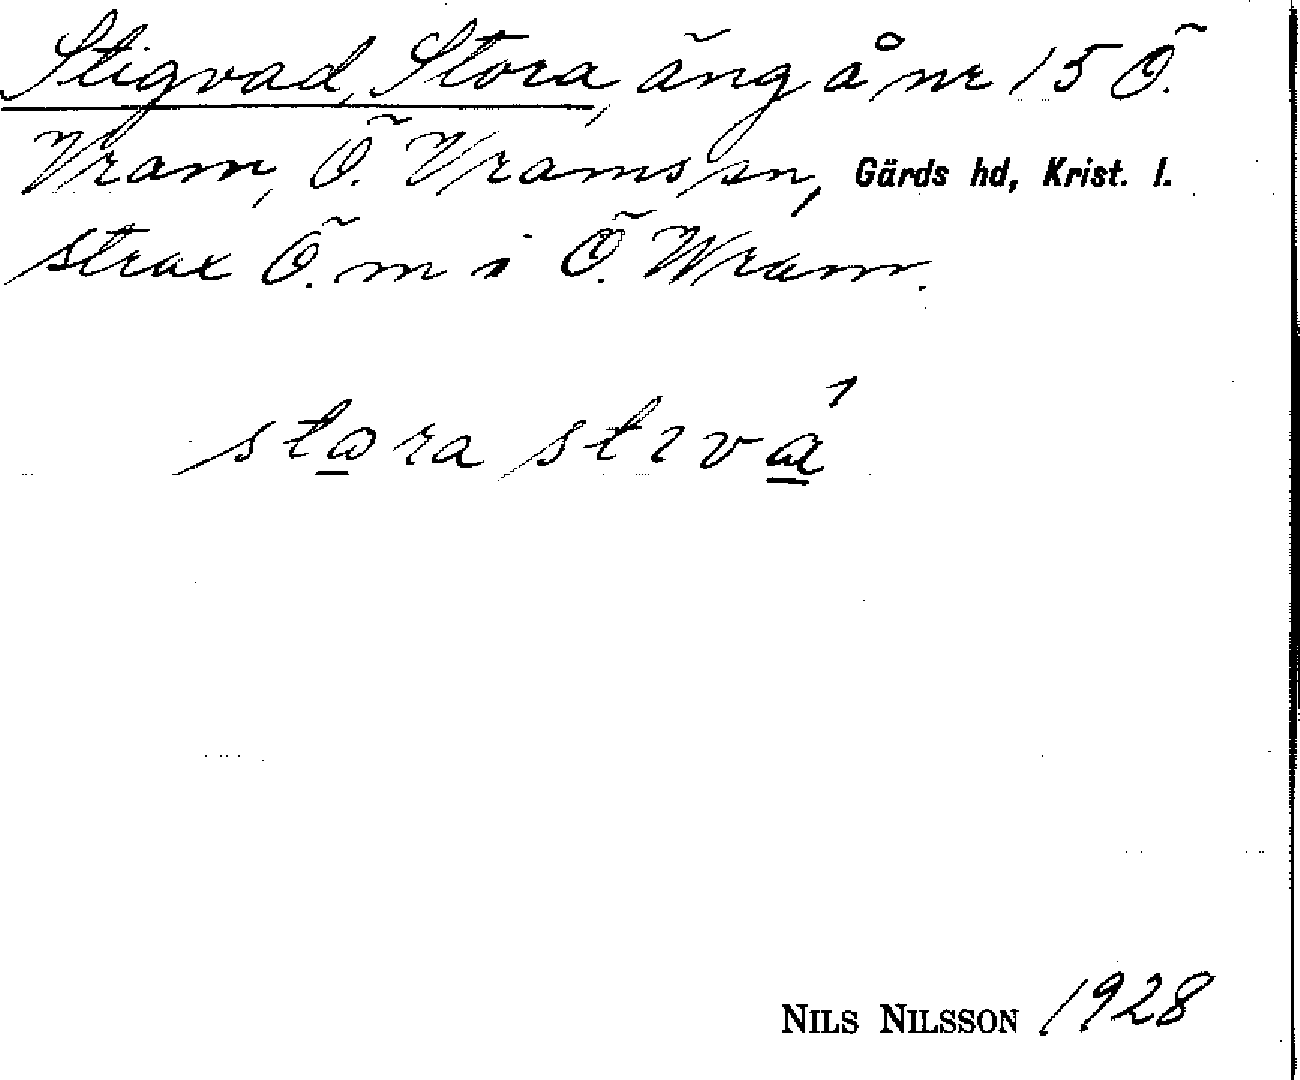 Stigvad, Stora, äng å nr 15 Ö.
Vram, Ö. Vrams sn, Gärds hd, Krist. l.
strax Ö. m i Ö. Wram.
stora stivá
NILS NILSSON 1928